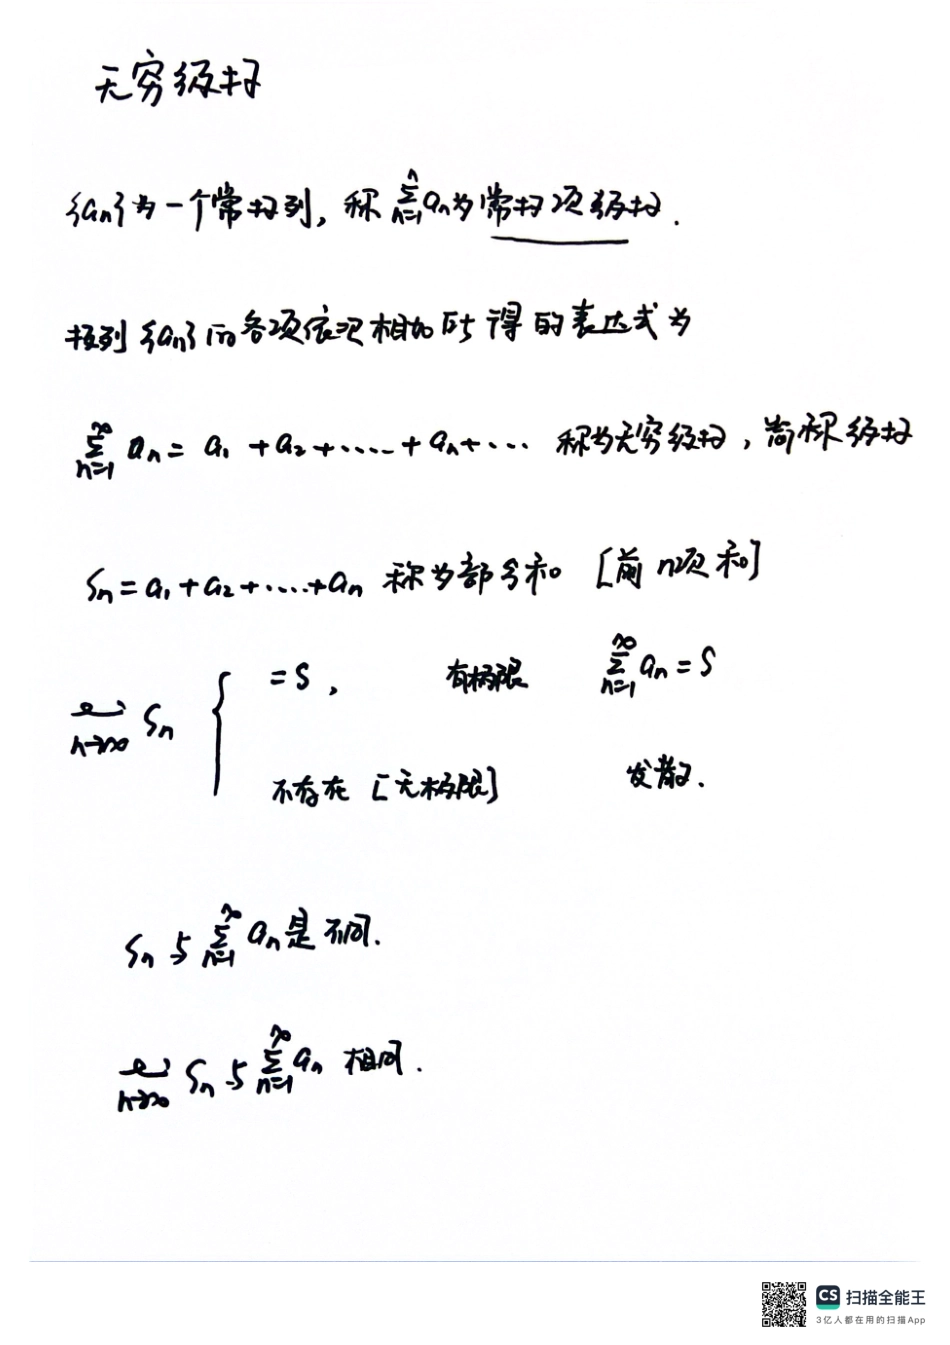 无穷级数
{an}为一个常数列，称 ∑_{n=1}^{n} an为常数项级数.
数列{an}的各项依次相加所得的表达式为
∑_{n=1}^{∞} an = a1 + a2 + ····· + an + ··· 称为无穷级数，简称级数
Sn = a1 + a2 + ····· + an 称为部分和 [前n项和]
lim_{n→∞} Sn { = S， 有极限 ∑_{n=1}^{∞} an = S
不存在 [无极限] 发散.
Sn 与 ∑_{n=1}^{∞} an 是不同.
lim_{n→∞} Sn 与 ∑_{n=1}^{∞} an 相同.
CS 扫描全能王
3亿人都在用的扫描App